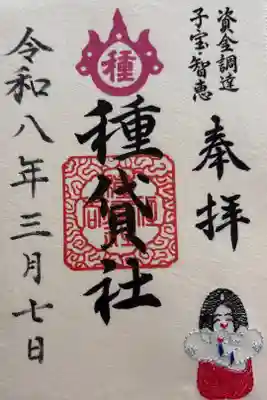 資金調達
子宝・智恵
奉拝
種
種貸社
令和八年三月七日